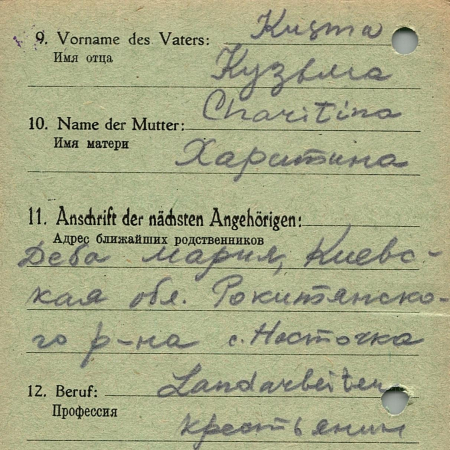 9. Vorname des Vaters: Kusma
Имя отца
Кузьма
Charitina
10. Name der Mutter:
Имя матери
Харитина
11. Anschrift der nächsten Angehörigen:
Адрес ближайших родственников
Деба Мария, Киевс-
кая обл. Рокитянско-
го р-на с. Насточка
12. Beruf: Landarbeiter
Профессия
крестьянин